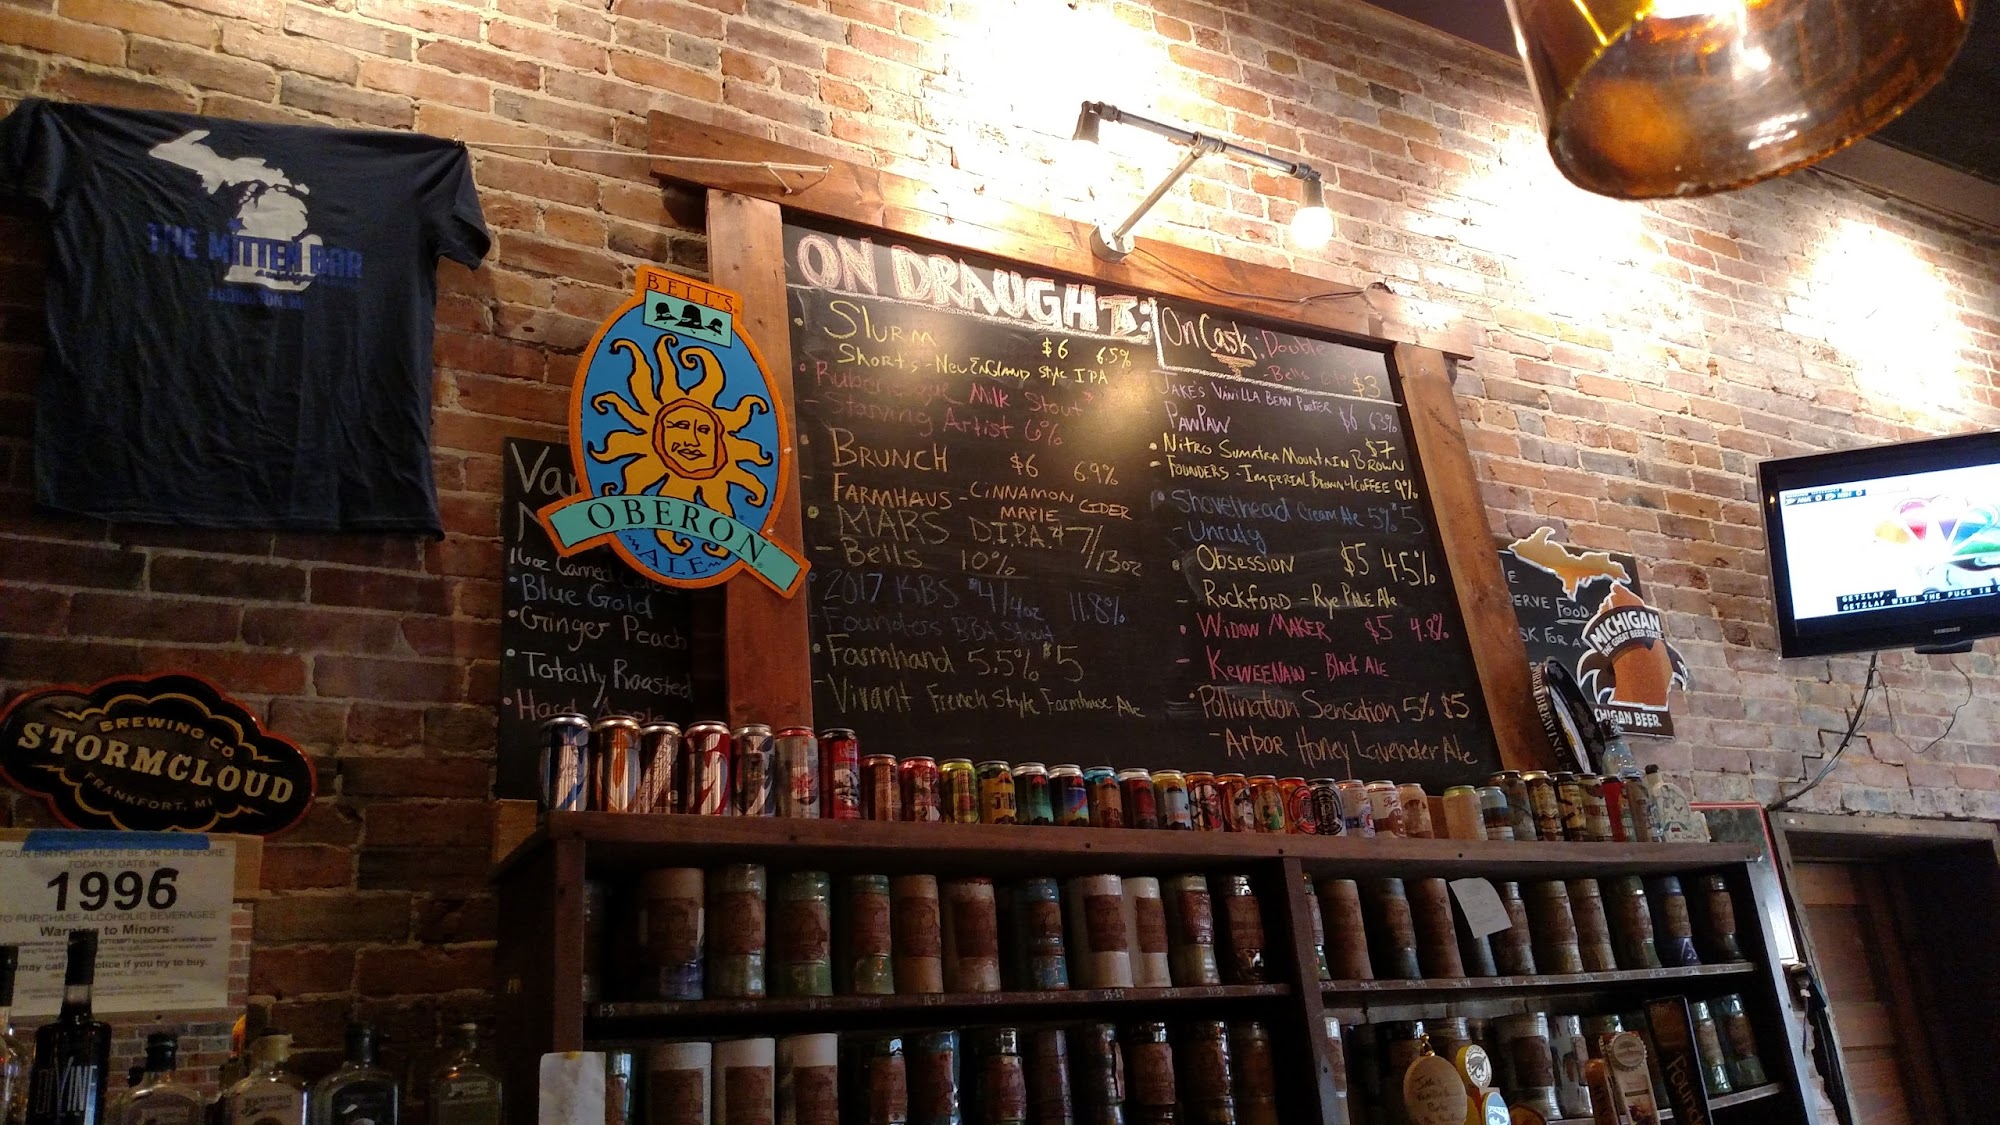 THE MITTEN BAR
LUDINGTON, MI
BELL'S
OBERON
ALE
ON DRAUGHT:
Slurm $6 6.5%
Short's - New England Style IPA
Milk Stout
- Starving Artist 6%
BRUNCH $6 6.9%
- FARMHAUS - CINNAMON MAPLE CIDER
MARS D.I.P.A. $7/13oz
- Bells 10%
2017 KBS $4/4oz 11.8%
- Founders BBA Stout
Farmhand 5.5% $5
- Vivant French Style Farmhouse Ale
On Cask: Double
- Bells $3
JAKE'S VANILLA BEAN PORTER $6 6.3%
PAWPAW
NITRO SUMATRA MOUNTAIN BROWN $7
- FOUNDERS - IMPERIAL BROWN w/COFFEE 9%
Shovelhead Cream Ale 5% $5
- Unruly
OBSESSION $5 4.5%
- ROCKFORD - Rye PALE Ale
WIDOW MAKER $5 4.8%
- KEWEENAW - Black Ale
Pollination Sensation 5% $5
- ARBOR Honey Lavender Ale
16oz Canned
Blue Gold
Ginger Peach
Totally Roasted
Hard Apple
BREWING CO.
STORMCLOUD
FRANKFORT, MI
YOUR BIRTHDAY MUST BE ON OR BEFORE
TODAY'S DATE IN
1996
TO PURCHASE ALCOHOLIC BEVERAGES
Warning to Minors:
may call police if you try to buy.
FOOD
MICHIGAN
THE GREAT BEER STATE
MICHIGAN BEER.
GETZLAF.
GETZLAF WITH THE PUCK IN
SAMSUNG
DIVINE
Found